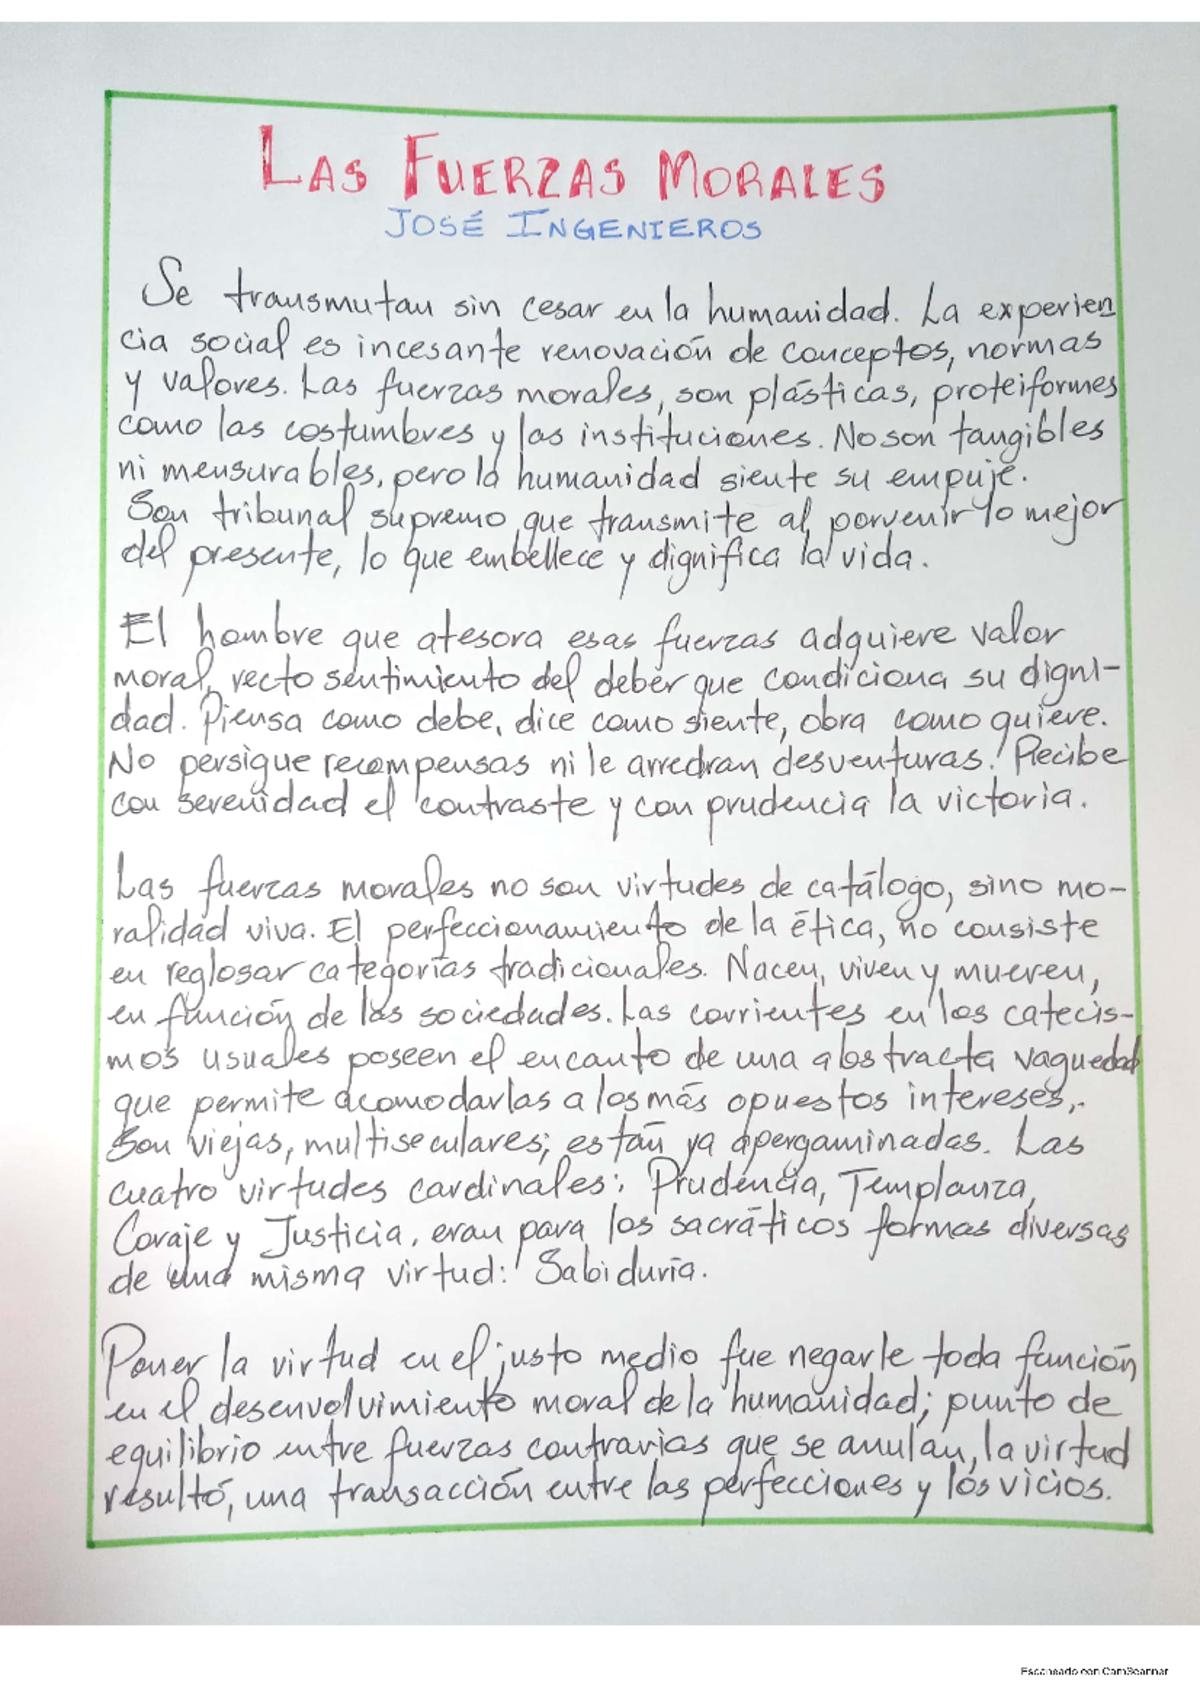 LAS FUERZAS MORALES
JOSÉ INGENIEROS
Se transmutan sin cesar en la humanidad. La experien
cia social es incesante renovación de conceptos, normas
y valores. Las fuerzas morales, son plásticas, proteiformes
como las costumbres y las instituciones. No son tangibles
ni mensurables, pero la humanidad siente su empuje.
Son tribunal supremo que transmite al porvenir lo mejor
del presente, lo que embellece y dignifica la vida.
El hombre que atesora esas fuerzas adquiere valor
moral, recto sentimiento del deber que condiciona su digni-
dad. Piensa como debe, dice como siente, obra como quiere.
No persigue recompensas ni le arredran desventuras. Recibe
con serenidad el contraste y con prudencia la victoria.
Las fuerzas morales no son virtudes de catálogo, sino mo-
ralidad viva. El perfeccionamiento de la ética, no consiste
en reglosar categorías tradicionales. Nacen, viven y mueren,
en función de las sociedades. Las corrientes en los catecis-
mos usuales poseen el encanto de una abstracta vaguedad
que permite acomodarlas a los más opuestos intereses,.
Son viejas, multiseculares; están ya apergaminadas. Las
cuatro virtudes cardinales: Prudencia, Templanza,
Coraje y Justicia, eran para los sacráticos formas diversas
de una misma virtud: Sabiduría.
Poner la virtud en el justo medio fue negarle toda función
en el desenvolvimiento moral de la humanidad; punto de
equilibrio entre fuerzas contrarias que se anulan, la virtud
resultó, una transacción entre las perfecciones y los vicios.
Escaneado con CamScanner